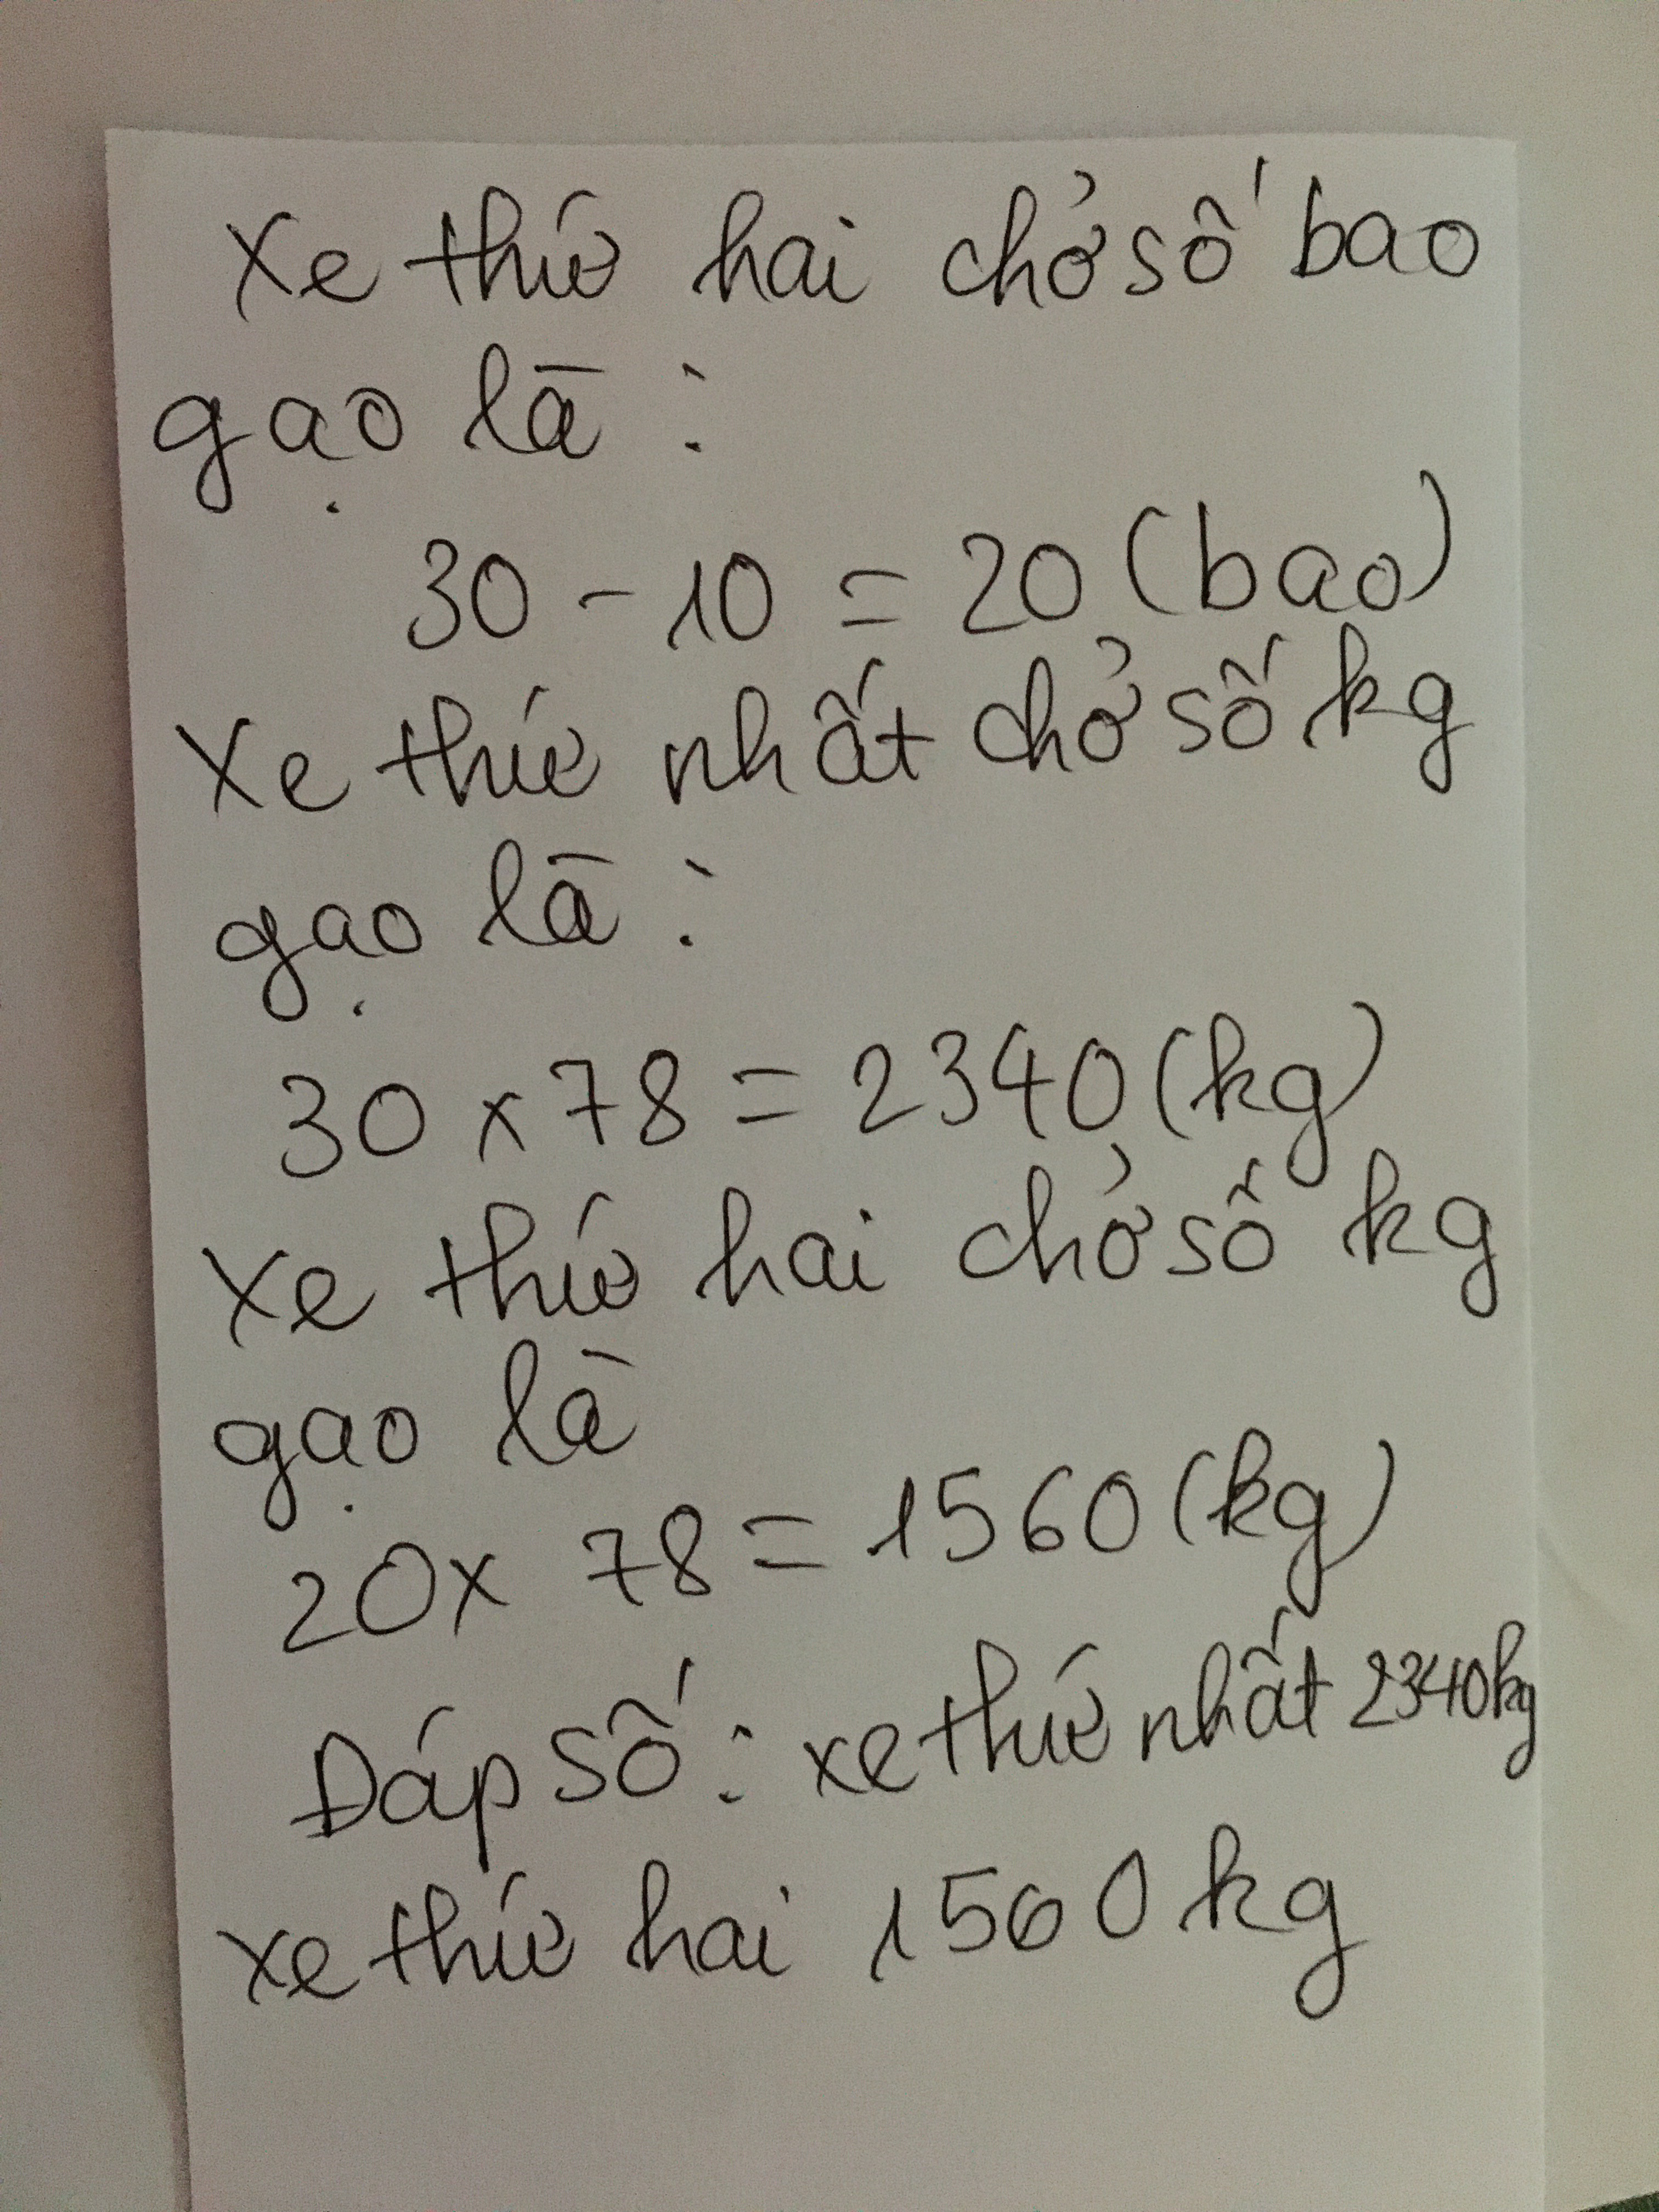 Xe thứ hai chở số bao
gạo là :
30 - 10 = 20 (bao)
Xe thứ nhất chở số kg
gạo là :
30 x 78 = 2340 (kg)
Xe thứ hai chở số kg
gạo là
20 x 78 = 1560 (kg)
Đáp số : xe thứ nhất 2340kg
xe thứ hai 1560 kg